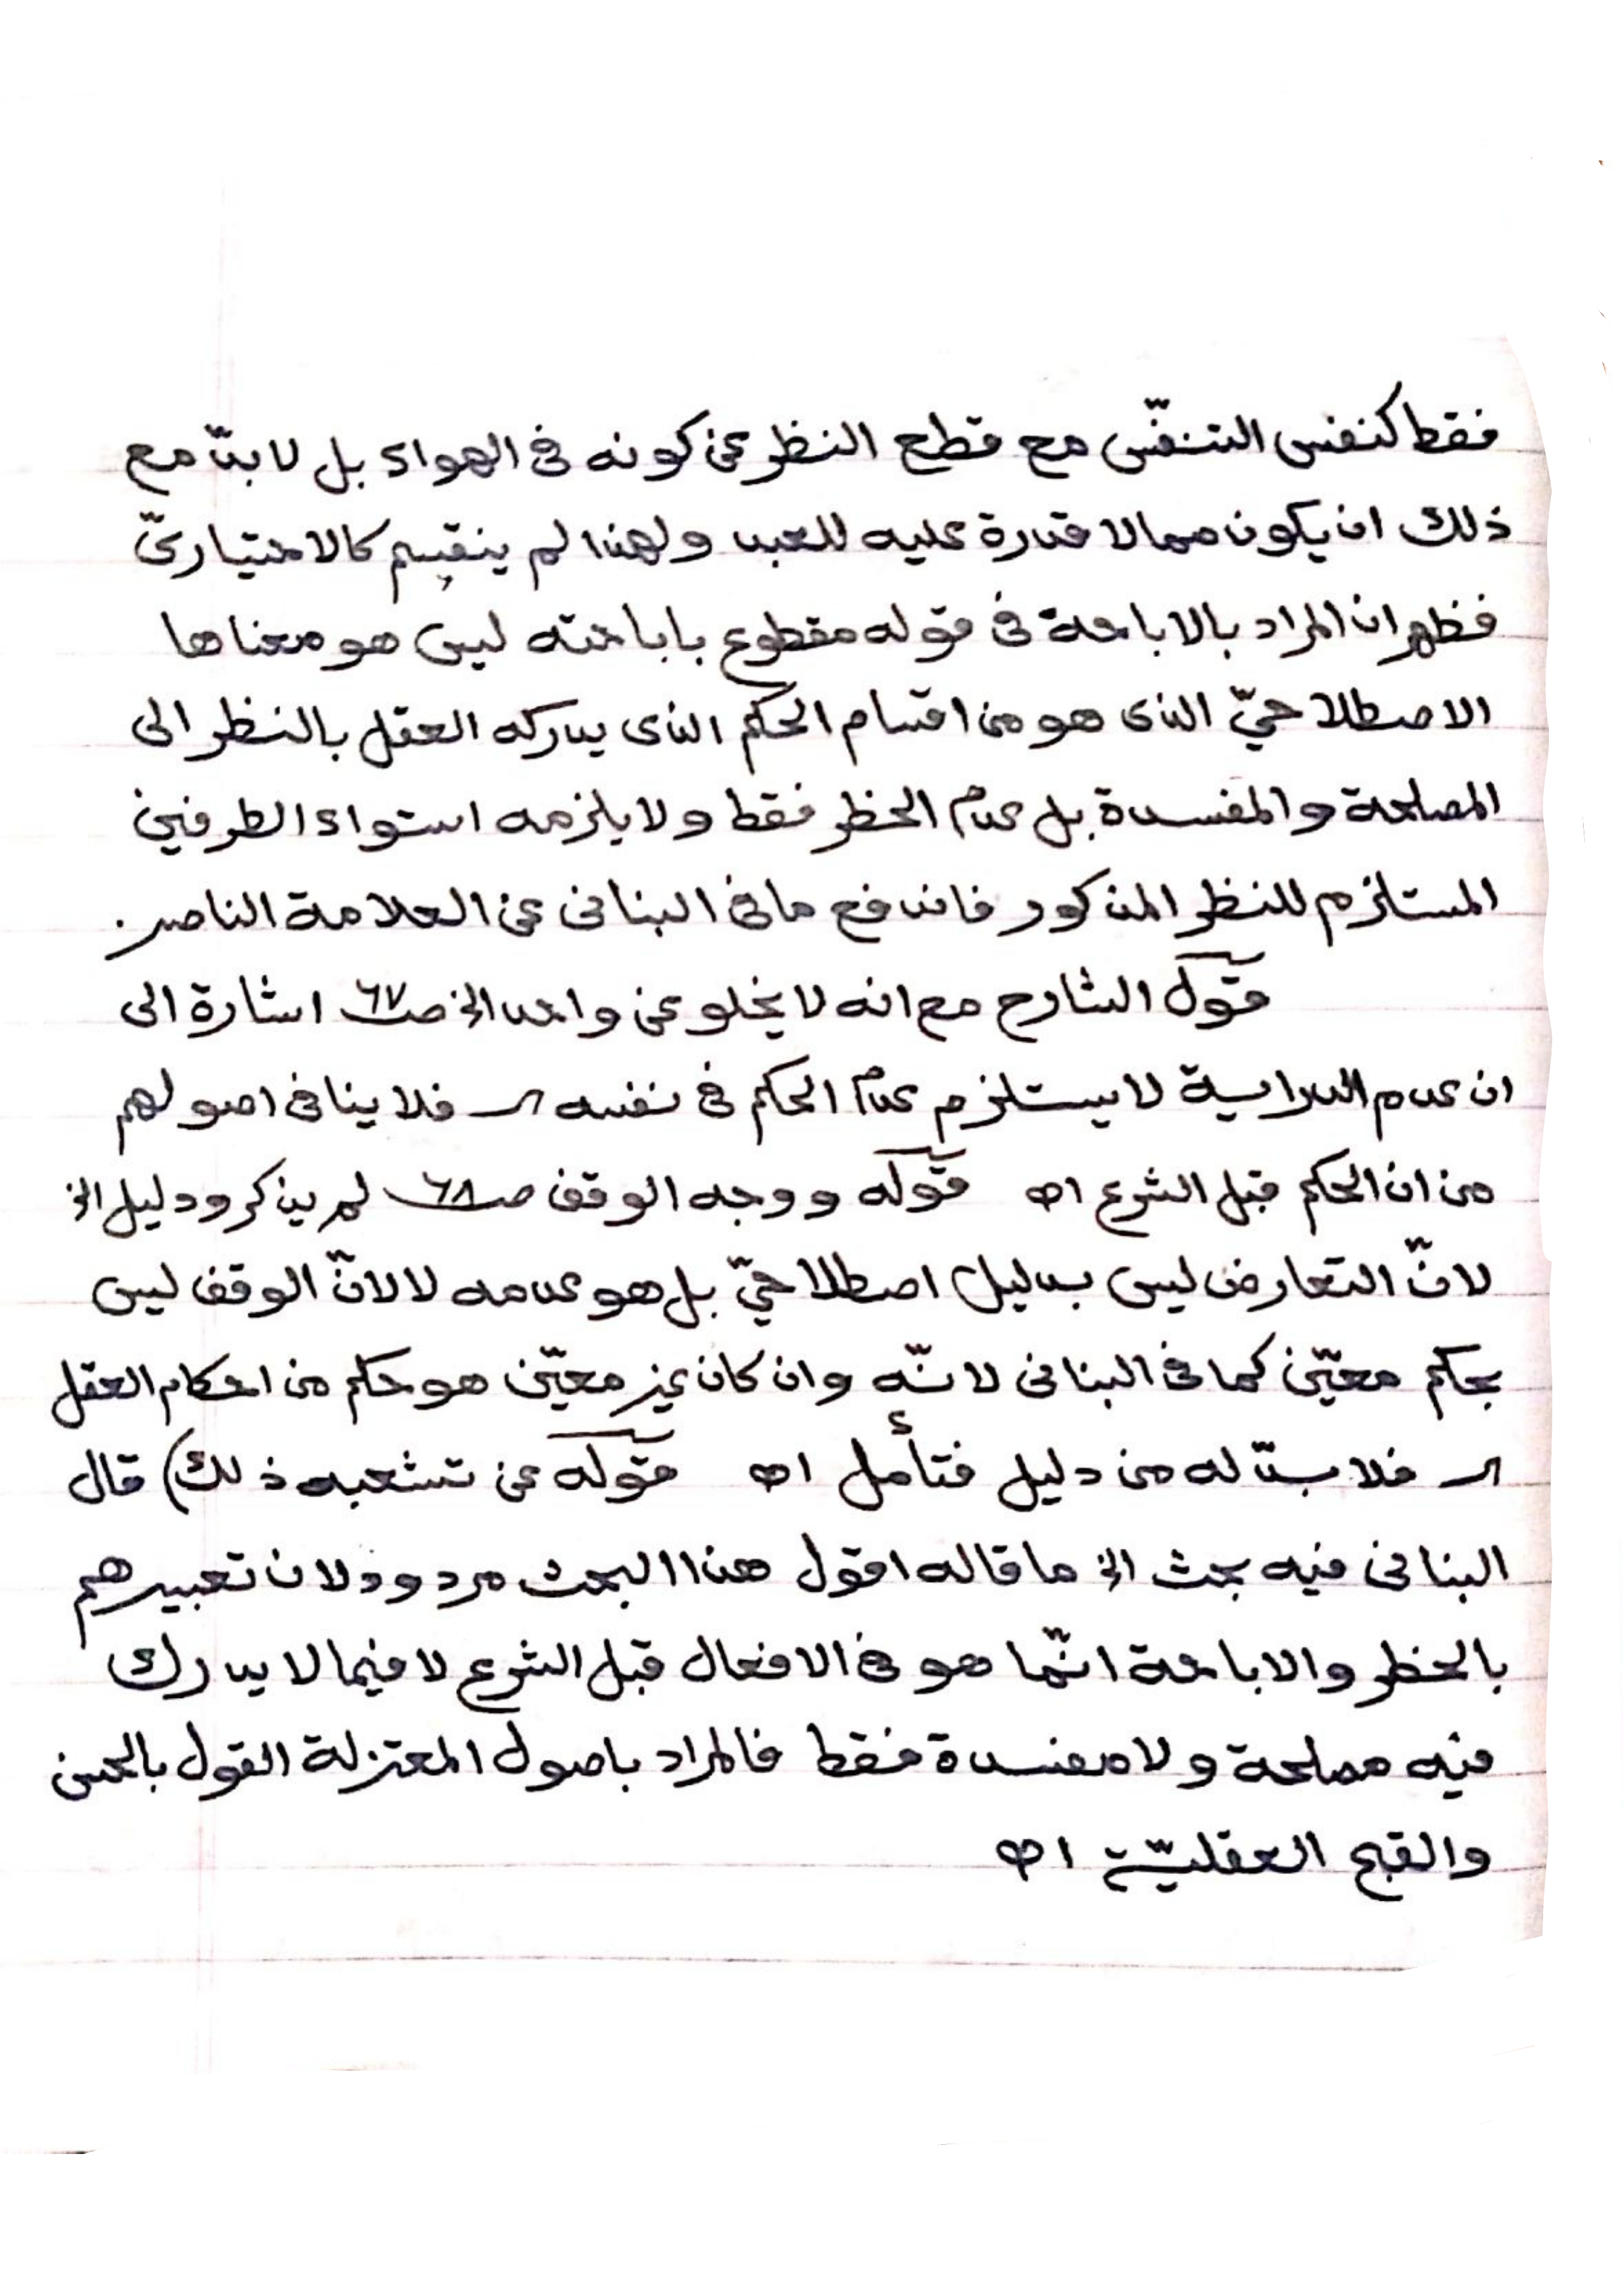 فقط كنفس التنفّس مع قطع النظر عن كونه فى الهواء بل لا بدّ مع
ذلك ان يكون مما لا قدرة عليه للعبد ولهذا لم ينقسم كالاختيارىّ
فظهر ان المراد بالاباحة فى قوله مقطوع باباحته ليس هو معناها
الاصطلاحىّ الذى هو من اقسام الحكم الذى يدركه العقل بالنظر الى
المصلحة والمفسدة بل عدم الحظر فقط ولا يلزمه استواء الطرفين
المستلزم للنظر المذكور فاندفع ما فى البنانى عن العلامة الناصر.
قول الشارح مع انه لا يخلو عن واحد الخ صـ٦٧ اشارة الى
ان عدم الدراية لا يستلزم عدم الحكم فى نفسه فلا ينافى اصولهم
من ان الحكم قبل الشرع اه قوله ووجه الوقف صـ٦٨ لم يذكر ودليل الخ
لانّ التعارض ليس بدليل اصطلاحىّ بل هو عدمه لا لانّ الوقف ليس
بحكم معيّن كما فى البنانى لانّه وان كان غير معيّن هو حكم من احكام العقل
فلا بدّ له من دليل فتأمل اه قوله عن تشعبه ذلك) قال
البنانى فيه بحث الخ ما قاله اقول هذا البحث مردود لان تعبيرهم
بالحظر والاباحة انّما هو فى الافعال قبل الشرع لا فيما لا يدرك
فيه مصلحة ولا مفسدة فقط فالمراد باصول المعتزلة القول بالحسن
والقبح العقليّين اه